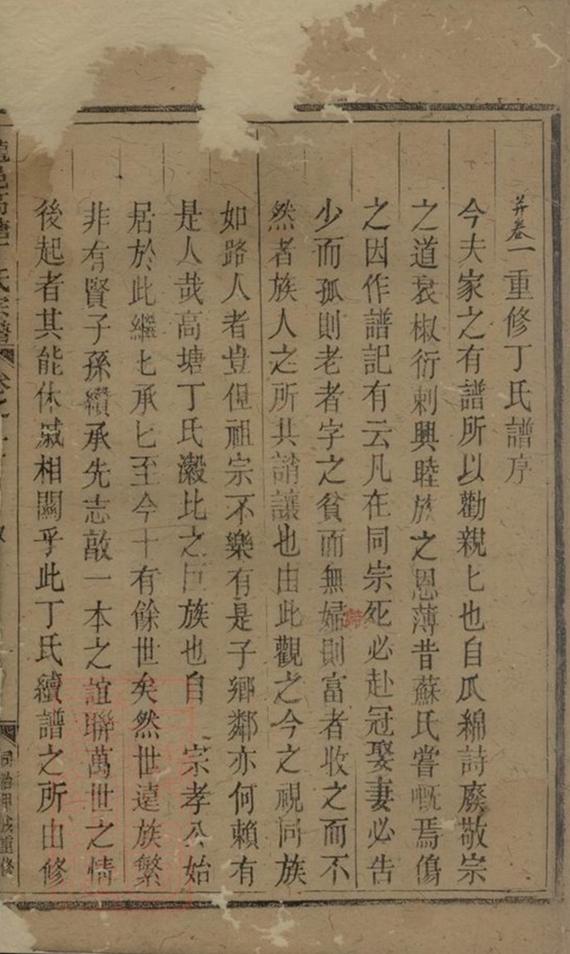 并卷一重修丁氏譜序
今夫家之有譜所以勸親匕也自瓜綿詩廢敬宗
之道衰椒衍刺興睦族之恩薄昔蘇氏嘗慨焉傷
之因作譜記有云凡在同宗死必赴冠娶妻必告
少而孤則老者字之貧而無婦則富者收之而不
然者族人之所共誚讓也由此觀之今之視同族
如路人者豈但祖宗不樂有是子鄉鄰亦何賴有
是人哉高塘丁氏瀔北之巨族也自 宗孝公始
居於此繼匕承匕至今十有餘世矣然世遠族繁
非有賢子孫纘承先志敵一本之誼聯萬世之情
後起者其能休戚相關乎此丁氏續譜之所由修
龍邑高塘丁氏宗譜 卷之一 同治甲戌重修